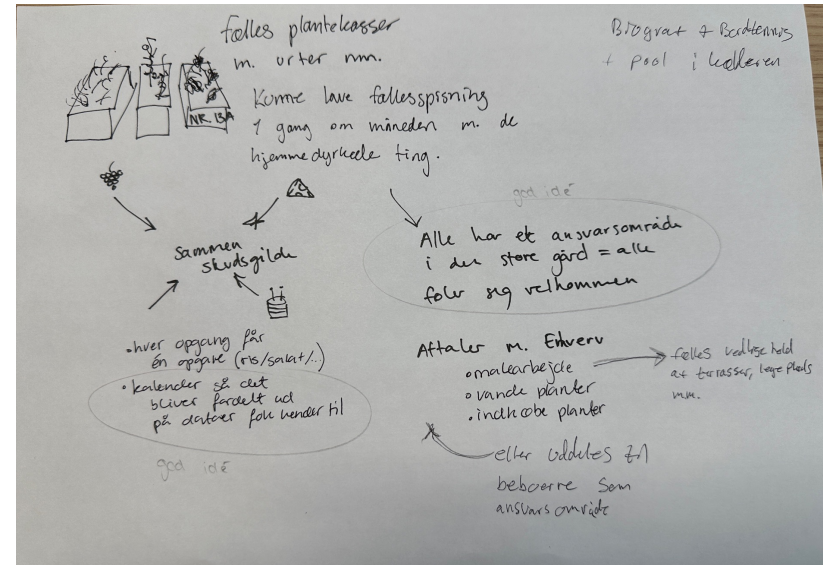 fælles plantekasser
m. urter mm.
Biograf + Bordtennis
+ pool i kælderen
NR. 13A
Kunne lave fællesspisning
1 gang om måneden m. de
hjemmedyrkede ting.
god idé
Alle har et ansvarsområde
i den store gård = alle
føler sig velkommen
Sammen
skudsgilde
• hver opgang får
én opgave (ris/salat/..)
• kalender så det
bliver fordelt ud
på datoer folk kender til
god idé
Aftaler m. Erhverv
• malearbejde
• vande planter
• indkøbe planter
fælles vedligehold
af terrasser, legeplads
mm.
eller uddeles til
beboerre som
ansvarsområde